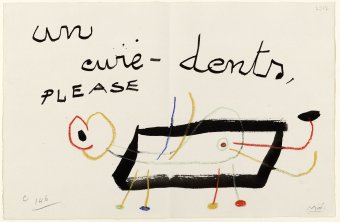 un
curè - dents,
PLEASE
Miró